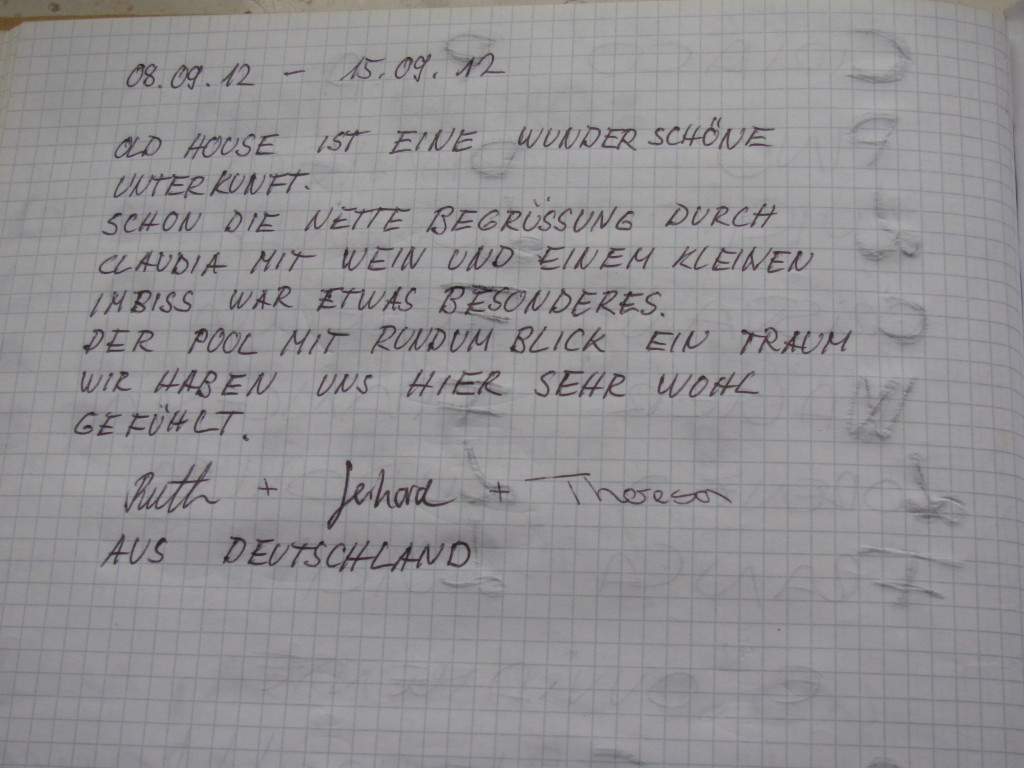 08.09.12 - 15.09.12
OLD HOUSE IST EINE WUNDERSCHÖNE
UNTERKUNFT.
SCHON DIE NETTE BEGRÜSSUNG DURCH
CLAUDIA MIT WEIN UND EINEM KLEINEN
IMBISS WAR ETWAS BESONDERES.
DER POOL MIT RUNDUM BLICK EIN TRAUM
WIR HABEN UNS HIER SEHR WOHL
GEFÜHLT.
Ruth + Gerhard + Theresa
AUS DEUTSCHLAND